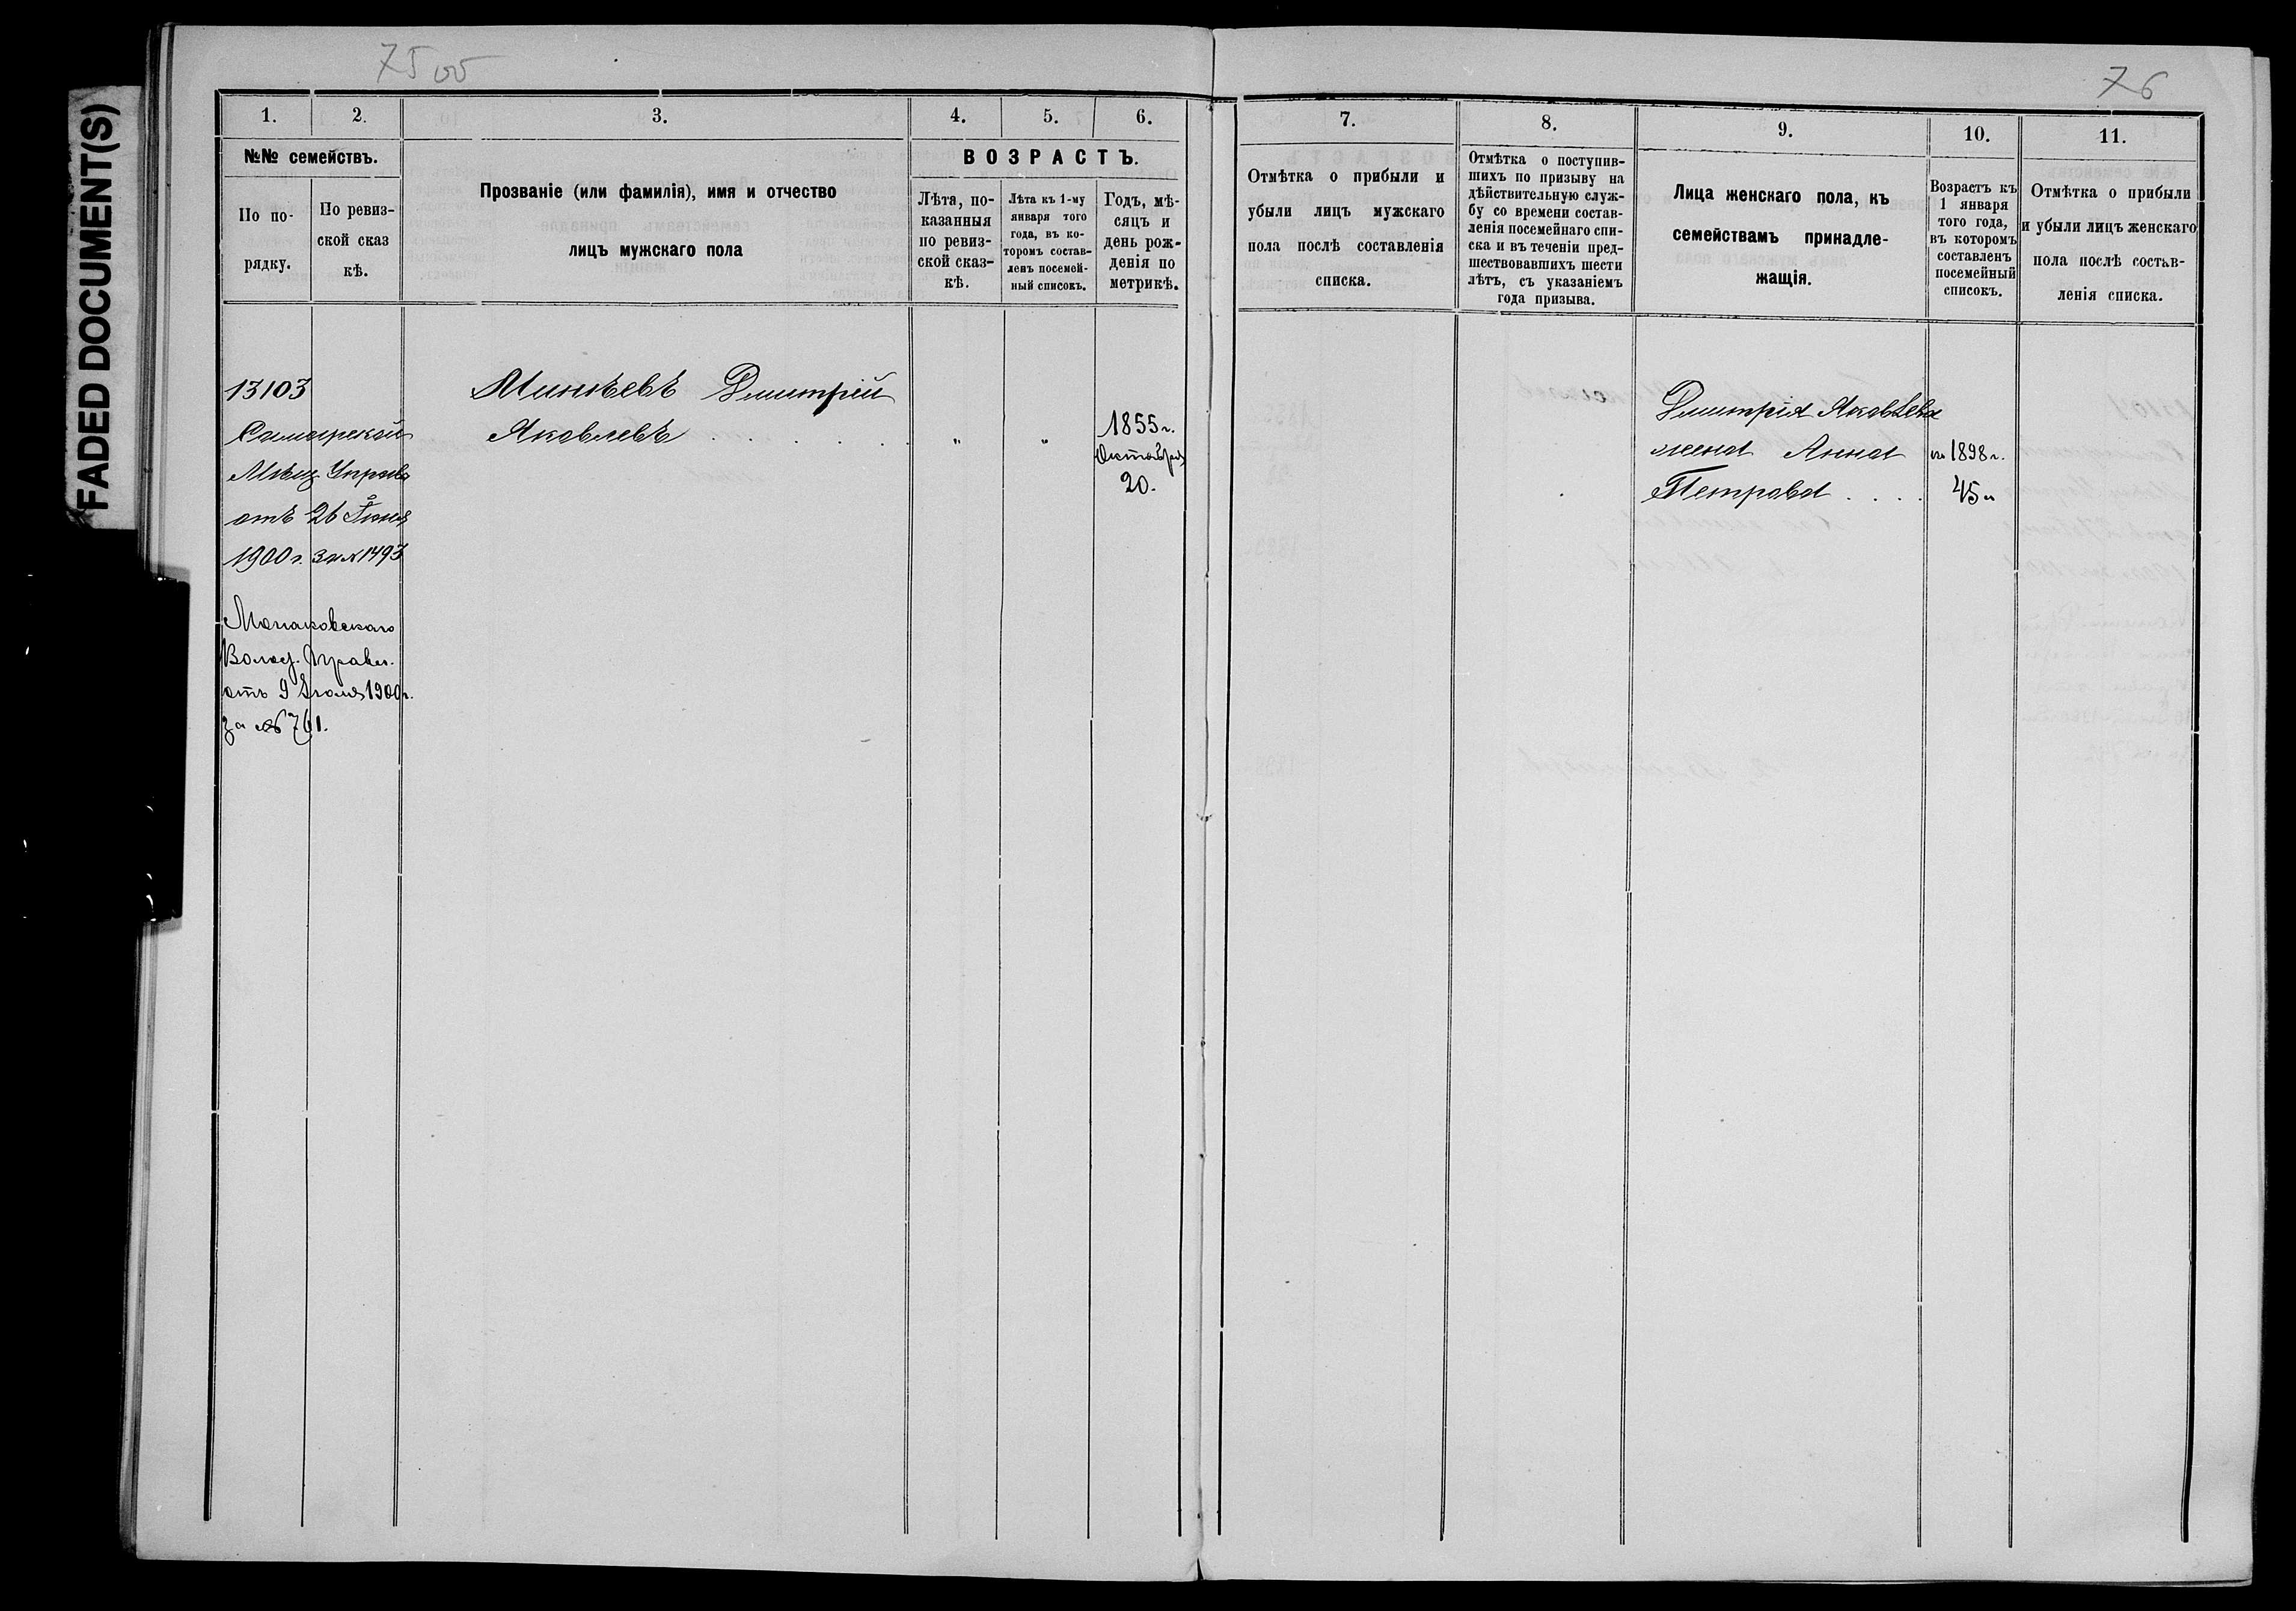 FADED DOCUMENT(S)
75 об
76
1.
2.
3.
4.
5.
6.
№№ семействъ.
По по-
рядку.
По ревиз-
ской сказ
кѣ.
Прозваніе (или фамилія), имя и отчество
лицъ мужскаго пола
ВОЗРАСТЪ.
Лѣта, по-
казанныя
по ревиз-
ской сказ-
кѣ.
Лѣта къ 1-му
января того
года, въ ко-
торомъ состав-
ленъ посемей-
ный списокъ.
Годъ, мѣ-
сяцъ и
день рож-
денія по
метрикѣ.
13103
Самарской
Мѣщ. Управы
отъ 26 Іюня
1900 г. за № 1493
Волос. Правл.
отъ 9 Іюля 1900 г.
за № 761.
Минѣевъ Дмитрій
Яковлевъ . . . . . „ „
1855 г.
Октября
20.
7.
8.
9.
10.
11.
Отмѣтка о прибыли и
убыли лицъ мужскаго
пола послѣ составленія
списка.
Отмѣтка о поступив-
шихъ по призыву на
дѣйствительную служ-
бу со времени состав-
ленія посемейнаго спи-
ска и въ теченіи пред-
шествовавшихъ шести
лѣтъ, съ указаніемъ
года призыва.
Лица женскаго пола, къ
семействамъ принадле-
жащія.
Возрастъ къ
1 января
того года,
въ которомъ
составленъ
посемейный
списокъ.
Отмѣтка о прибыли
и убыли лицъ женскаго
пола послѣ состав-
ленія списка.
Дмитрія Яковлева
жена Анна
Петрова . . . .
1898 г.
45